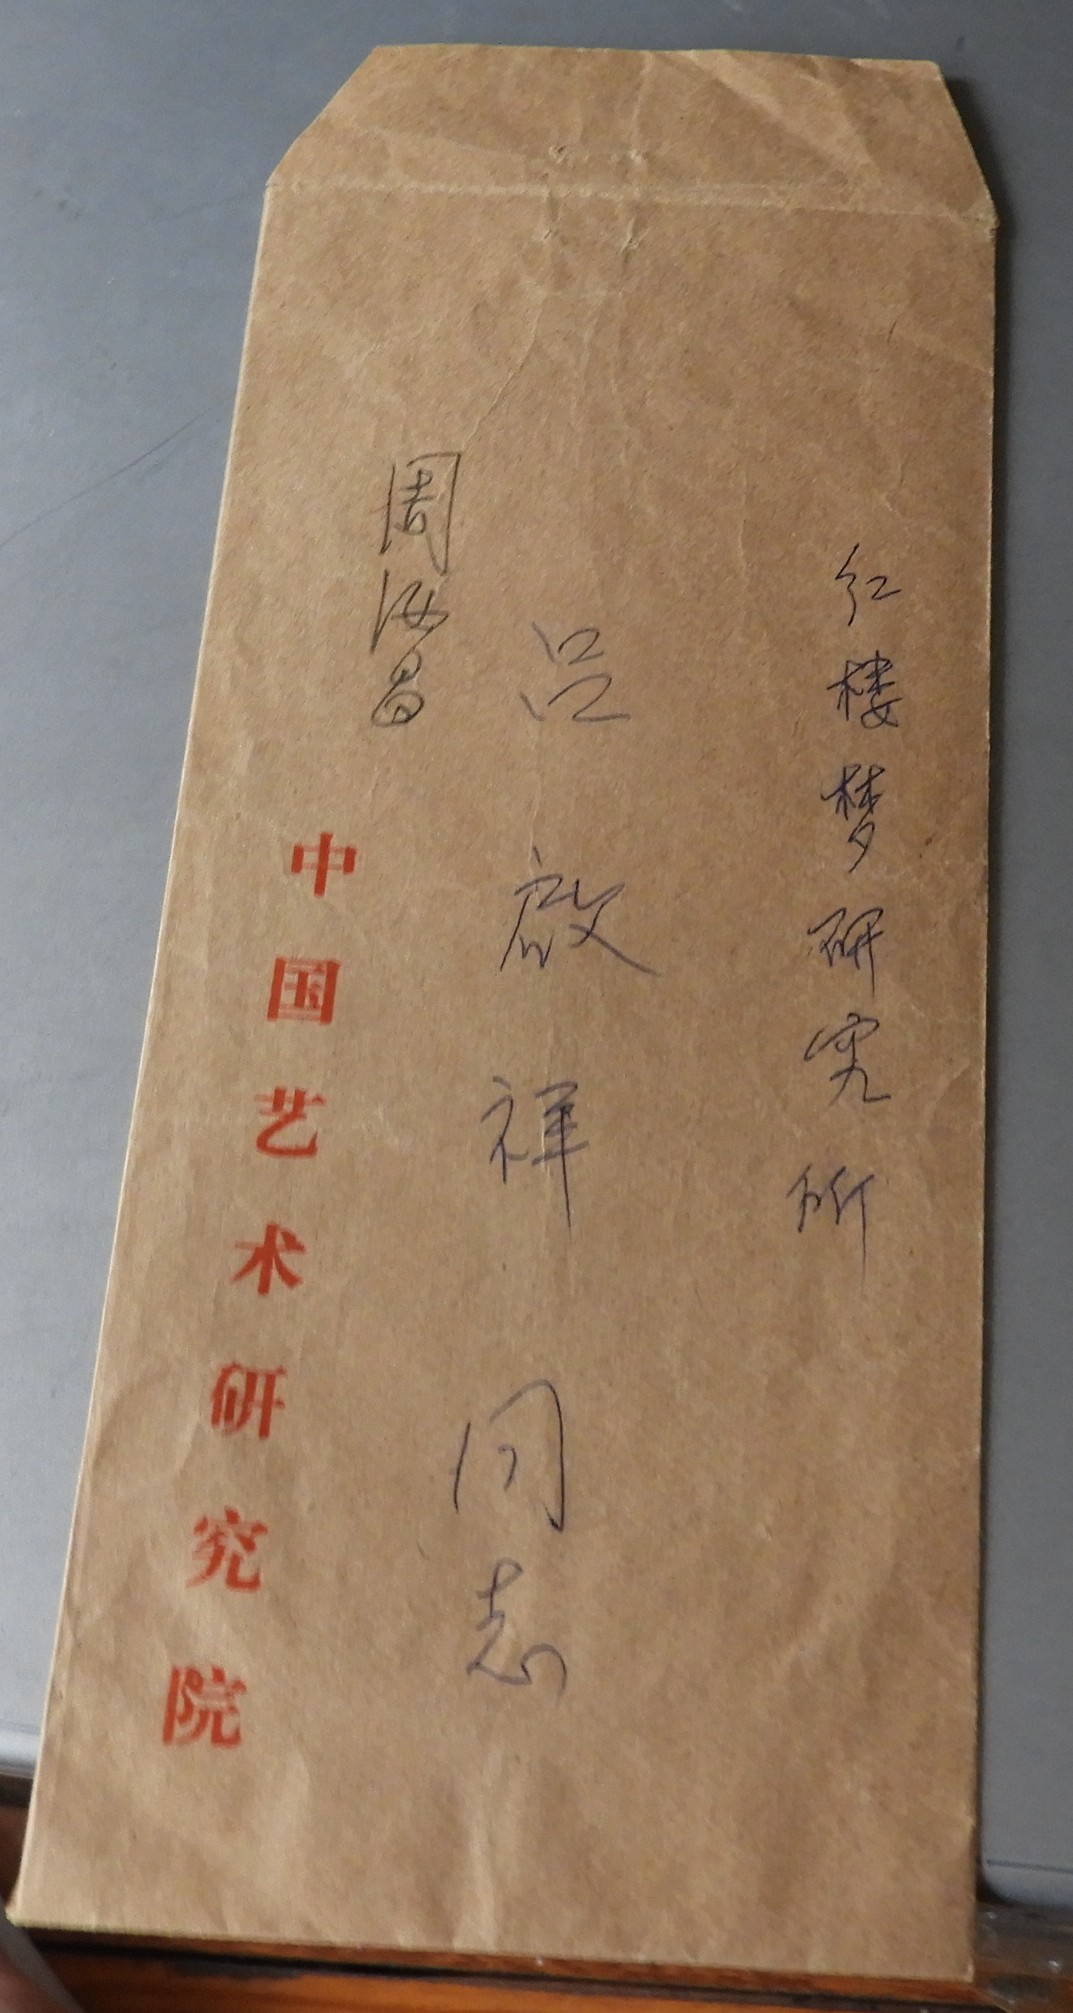 红楼梦研究所
吕启祥同志
周汝昌
中国艺术研究院